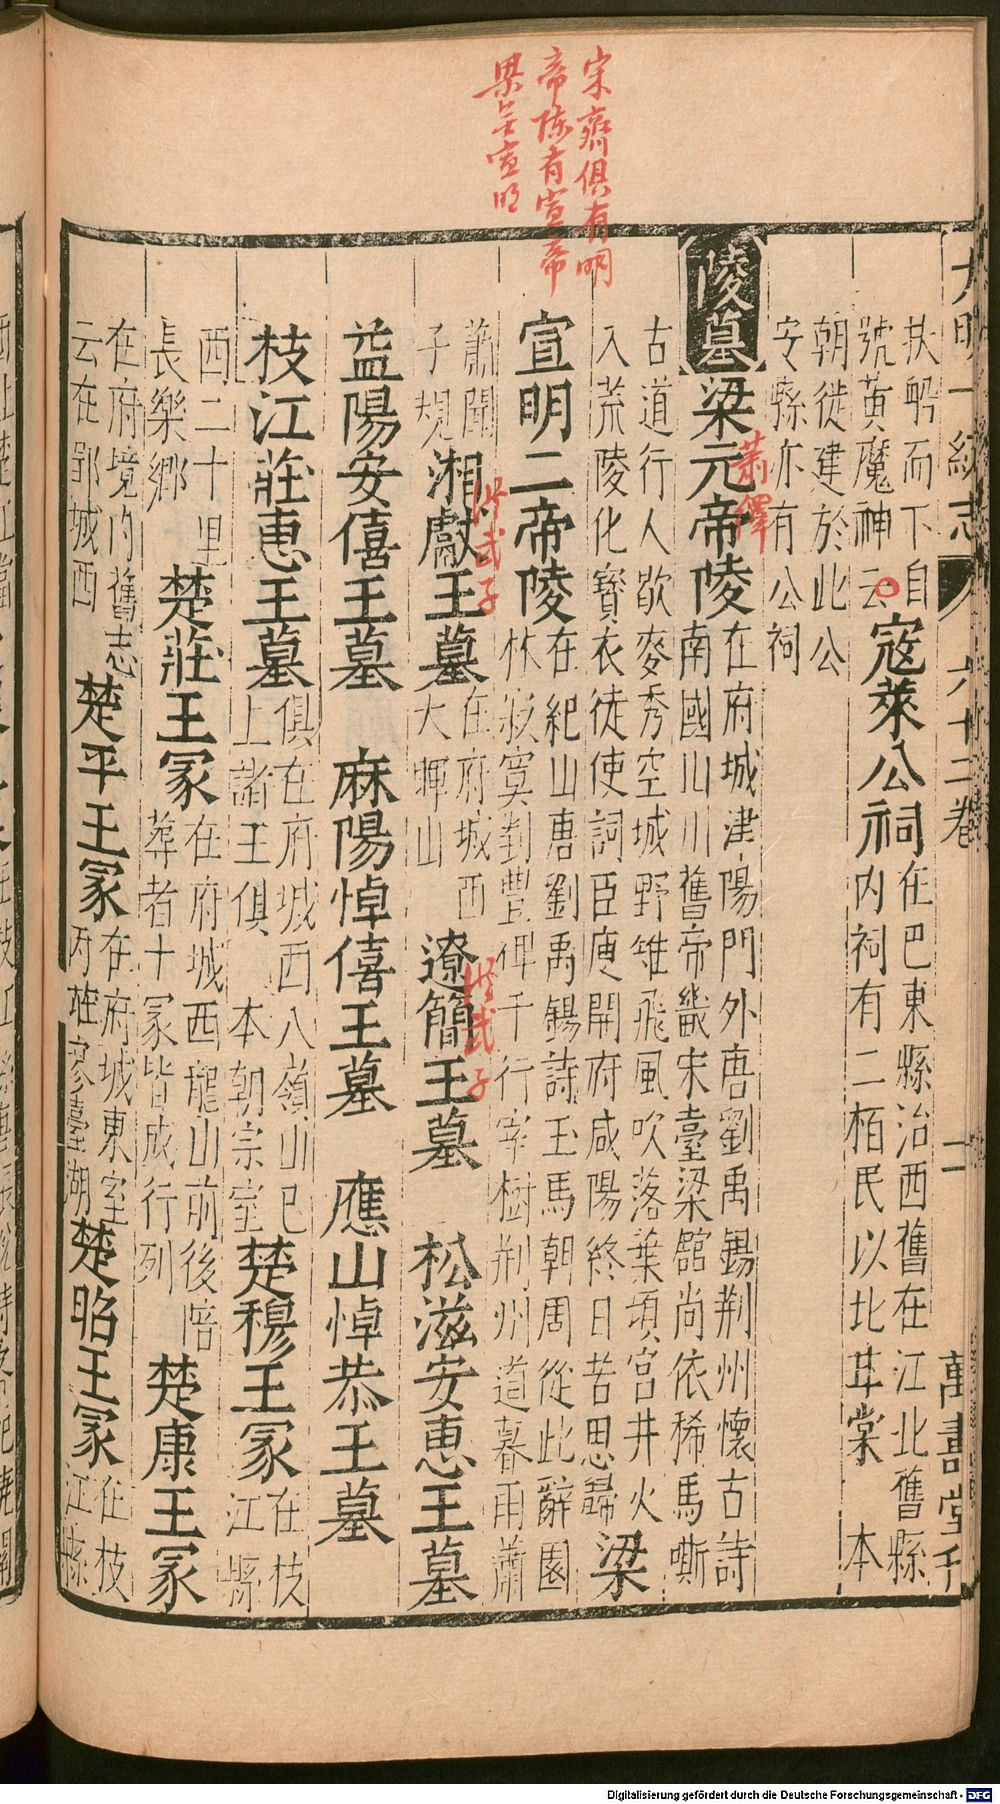 大明一統志 六十二卷 二 萬壽堂刊
扶船而下自
號黃魔神云
寇萊公祠
在巴東縣治西舊在江北舊縣
内祠有二栢民以比甘棠 本
朝徙建於此公
安縣亦有公祠
陵墓
梁元帝陵
在府城津陽門外唐劉禹錫荆州懷古詩
南國山川舊帝畿宋臺梁舘尚依稀馬嘶
古道行人歇麥秀空城野雉飛風吹落葉塡宮井火
入荒陵化寳衣徒使詞臣庾開府咸陽終日苦思歸
梁
宣明二帝陵
在紀山唐劉禹錫詩玉馬朝周從此辭園
林寂寞對豐碑千行宰樹荆州道暮雨蕭
蕭聞
子規
湘獻王墓
在府城西
大暉山
遼簡王墓
松滋安惠王墓
益陽安僖王墓
麻陽悼僖王墓
應山悼恭王墓
枝江莊惠王墓
俱在府城西八嶺山已
上諸王俱 本朝宗室
楚穆王冢
在枝
江縣
西二十里
長樂鄉
楚莊王冢
在府城西龍山前後陪
葬者十冢皆成行列
楚康王冢
在府境内舊志
云在郢城西
楚平王冢
在府城東室
内莊寥臺湖
楚昭王冢
在枝
江縣
宋齊俱有明
帝陈有宣帝
梁无宣明
萧繹
洪武子
洪武子
Digitalisierung gefördert durch die Deutsche Forschungsgemeinschaft - DFG